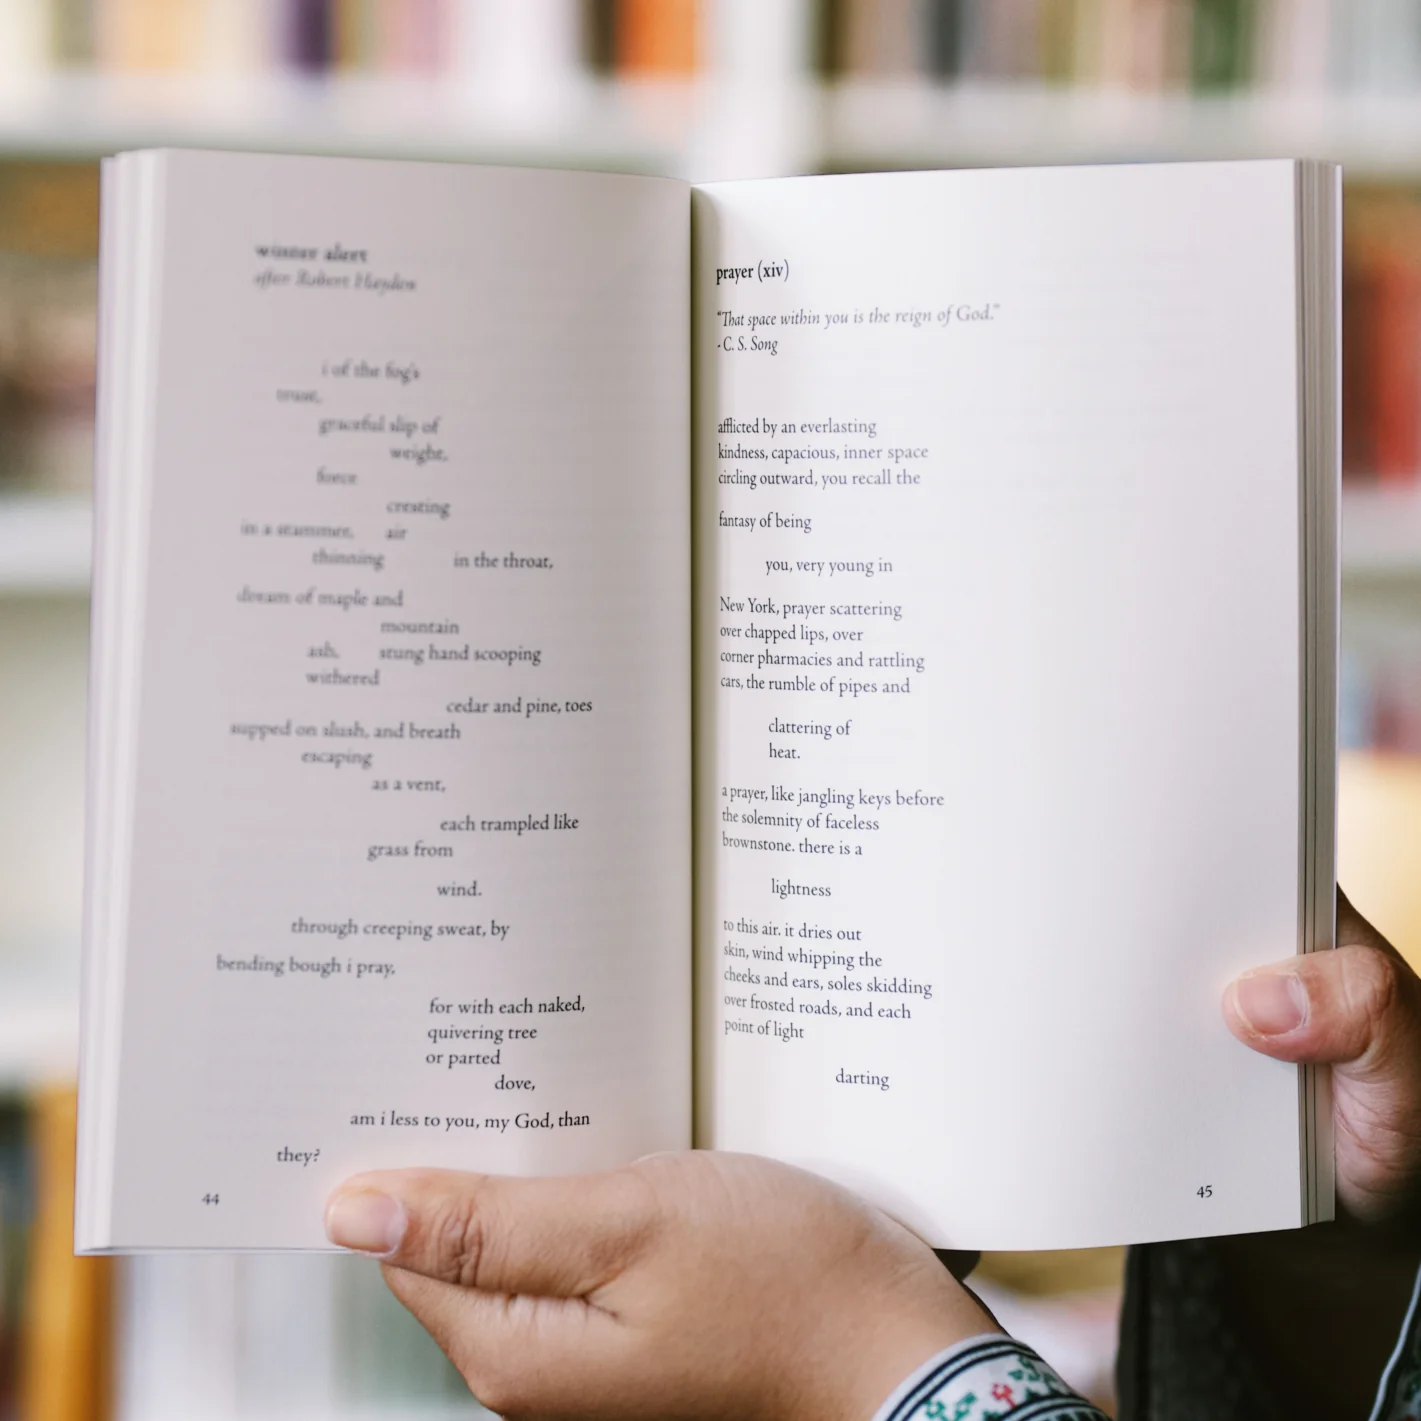 after Robert Hayden
i of the fog's
trust,
graceful slip of
weight,
fierce
creating
in a stammer, air
thinning in the throat,
dream of maple and
mountain
ash, stung hand scooping
withered
cedar and pine, toes
supped on slush, and breath
escaping
as a vent,
each trampled like
grass from
wind.
through creeping sweat, by
bending bough i pray,
for with each naked,
quivering tree
or parted
dove,
am i less to you, my God, than
they?
44
prayer (xiv)
"That space within you is the reign of God."
- C. S. Song
afflicted by an everlasting
kindness, capacious, inner space
circling outward, you recall the
fantasy of being
you, very young in
New York, prayer scattering
over chapped lips, over
corner pharmacies and rattling
cars, the rumble of pipes and
clattering of
heat.
a prayer, like jangling keys before
the solemnity of faceless
brownstone. there is a
lightness
to this air. it dries out
skin, wind whipping the
cheeks and ears, soles skidding
over frosted roads, and each
point of light
darting
45